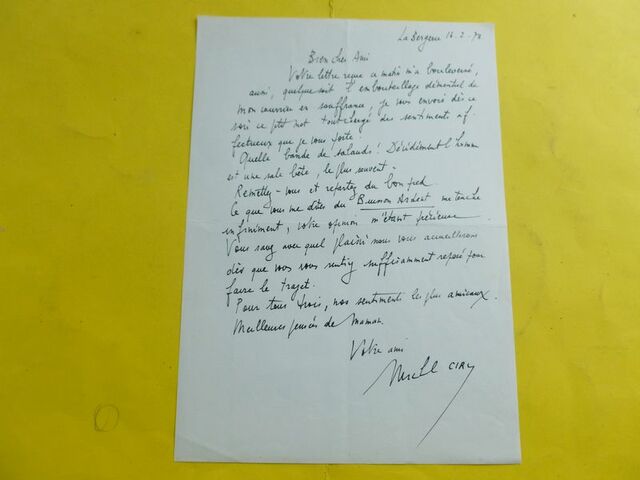 La Bergerie 16-2-78
Bien cher Ami
Votre lettre reçue ce matin m'a bouleversé,
aussi, quelque soit l'embouteillage démentiel de
mon courrier en souffrance, je vous envoie dès ce
soir ce p'tit mot tout chargé des sentiments af-
fectueux que je vous porte.
Quelle bande de salauds! Décidément l'homme
est une sale bête, le plus souvent.
Remettez-vous et repartez du bon pied.
Ce que vous me dites du Buisson Ardent me touche
infiniment, votre opinion m'étant précieuse.
Vous savez avec quel plaisir nous vous accueillerons
dès que vous vous sentirez suffisamment reposé pour
faire le trajet.
Pour tous trois, nos sentiments les plus amicaux.
Meilleures pensées de Maman.
Votre ami
Michel CIRY